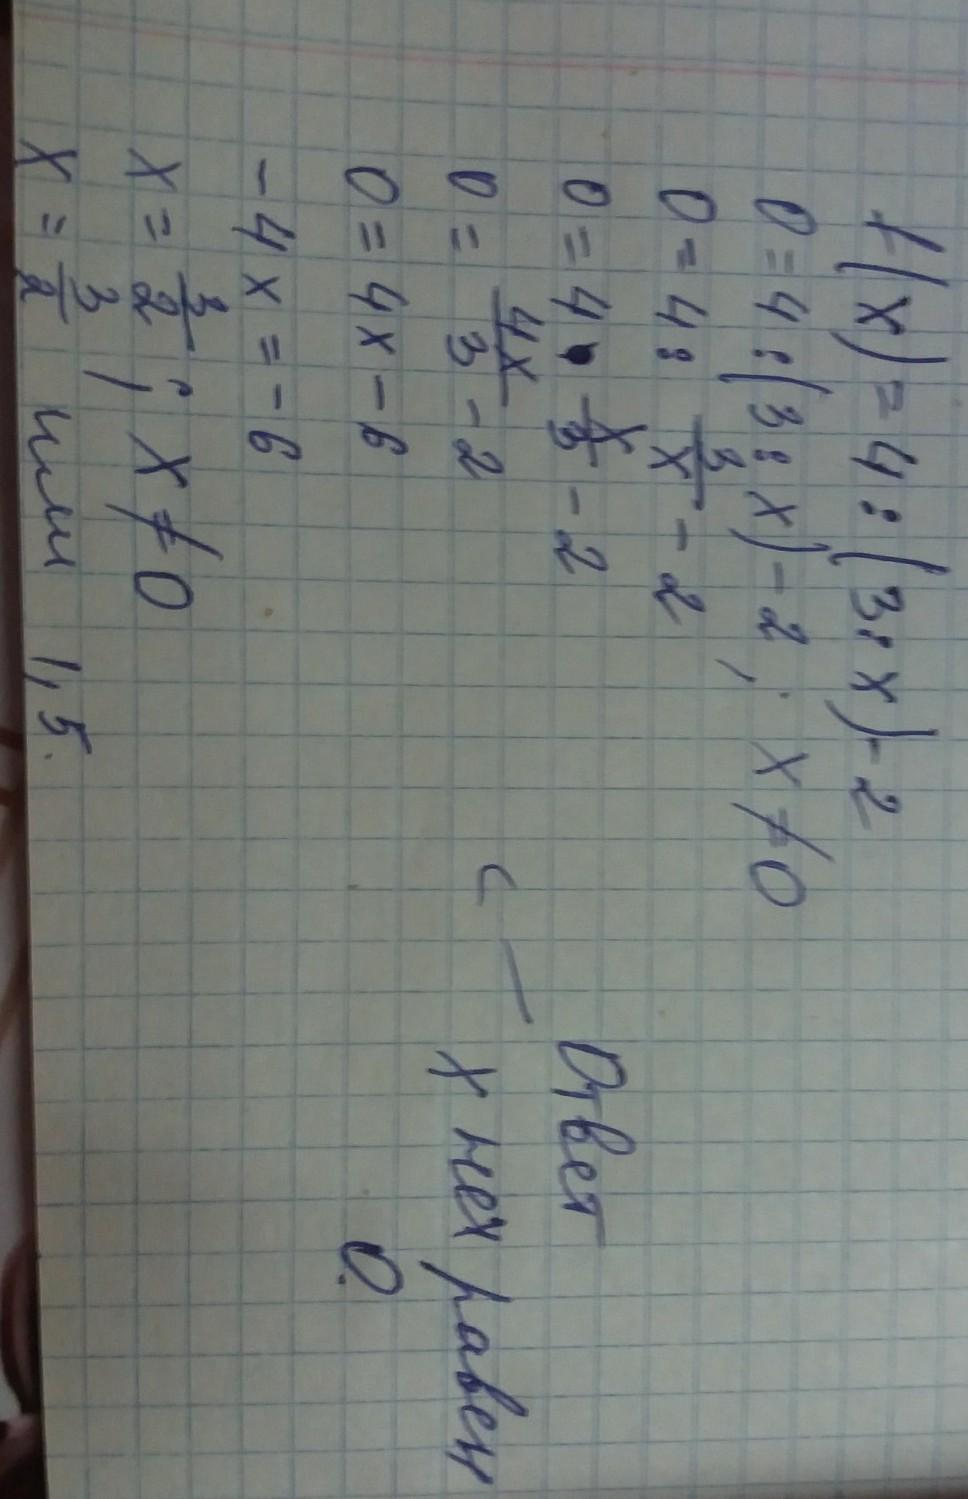 f(x) = 4 : (3 : x) - 2
0 = 4 : (3 : x) - 2 ; x ≠ 0
0 = 4 : 3/x - 2
0 = 4 · x/3 - 2
0 = 4x/3 - 2
0 = 4x - 6
- 4x = - 6
x = 3/2 ; x ≠ 0
x = 3/2 или 1,5.
Ответ
x равен
0.